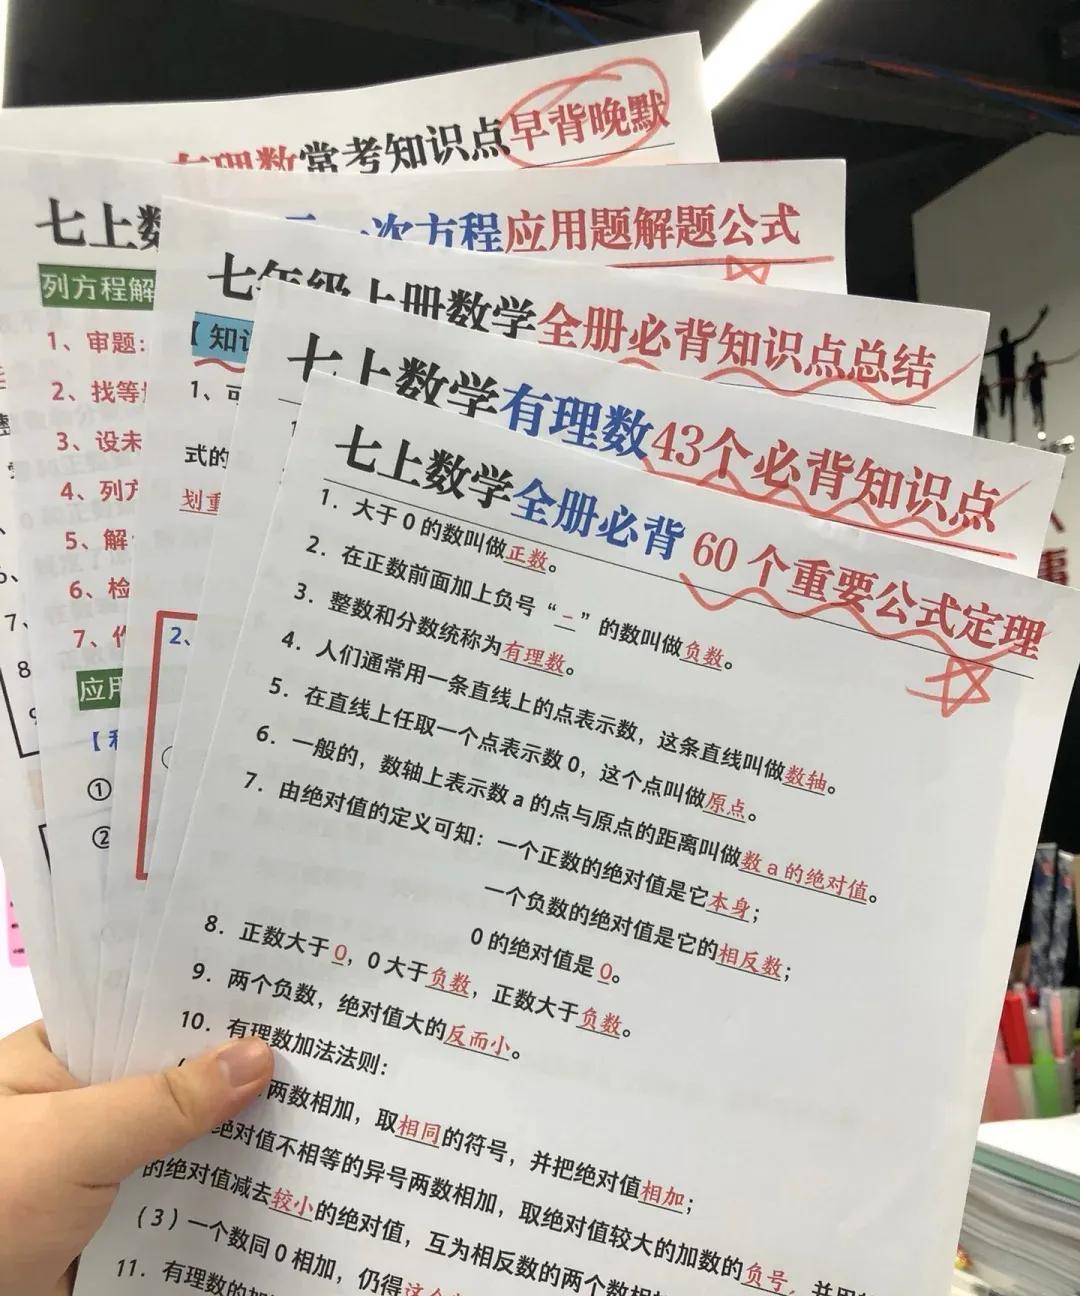 有理数常考知识点早背晚默
七上数
次方程应用题解题公式
列方程解
1、审题:
2、找等
3、设未
4、列方
5、解
6、检
7、作
应用
①
②
七年级上册数学全册必背知识点总结
【知识
1、可
式的
划重
2、
七上数学有理数43个必背知识点
七上数学全册必背 60 个重要公式定理
1. 大于 0 的数叫做正数。
2. 在正数前面加上负号“-”的数叫做负数。
3. 整数和分数统称为有理数。
4. 人们通常用一条直线上的点表示数，这条直线叫做数轴。
5. 在直线上任取一个点表示数 0，这个点叫做原点。
6. 一般的，数轴上表示数 a 的点与原点的距离叫做数 a 的绝对值。
7. 由绝对值的定义可知：一个正数的绝对值是它本身；
一个负数的绝对值是它的相反数；
0 的绝对值是 0。
8. 正数大于 0，0 大于负数，正数大于负数。
9. 两个负数，绝对值大的反而小。
10. 有理数加法法则：
两数相加，取相同的符号，并把绝对值相加；
绝对值不相等的异号两数相加，取绝对值较大的加数的负号，并用
的绝对值减去较小的绝对值，互为相反数的两个数相
（3）一个数同 0 相加，仍得这个
11. 有理数的加